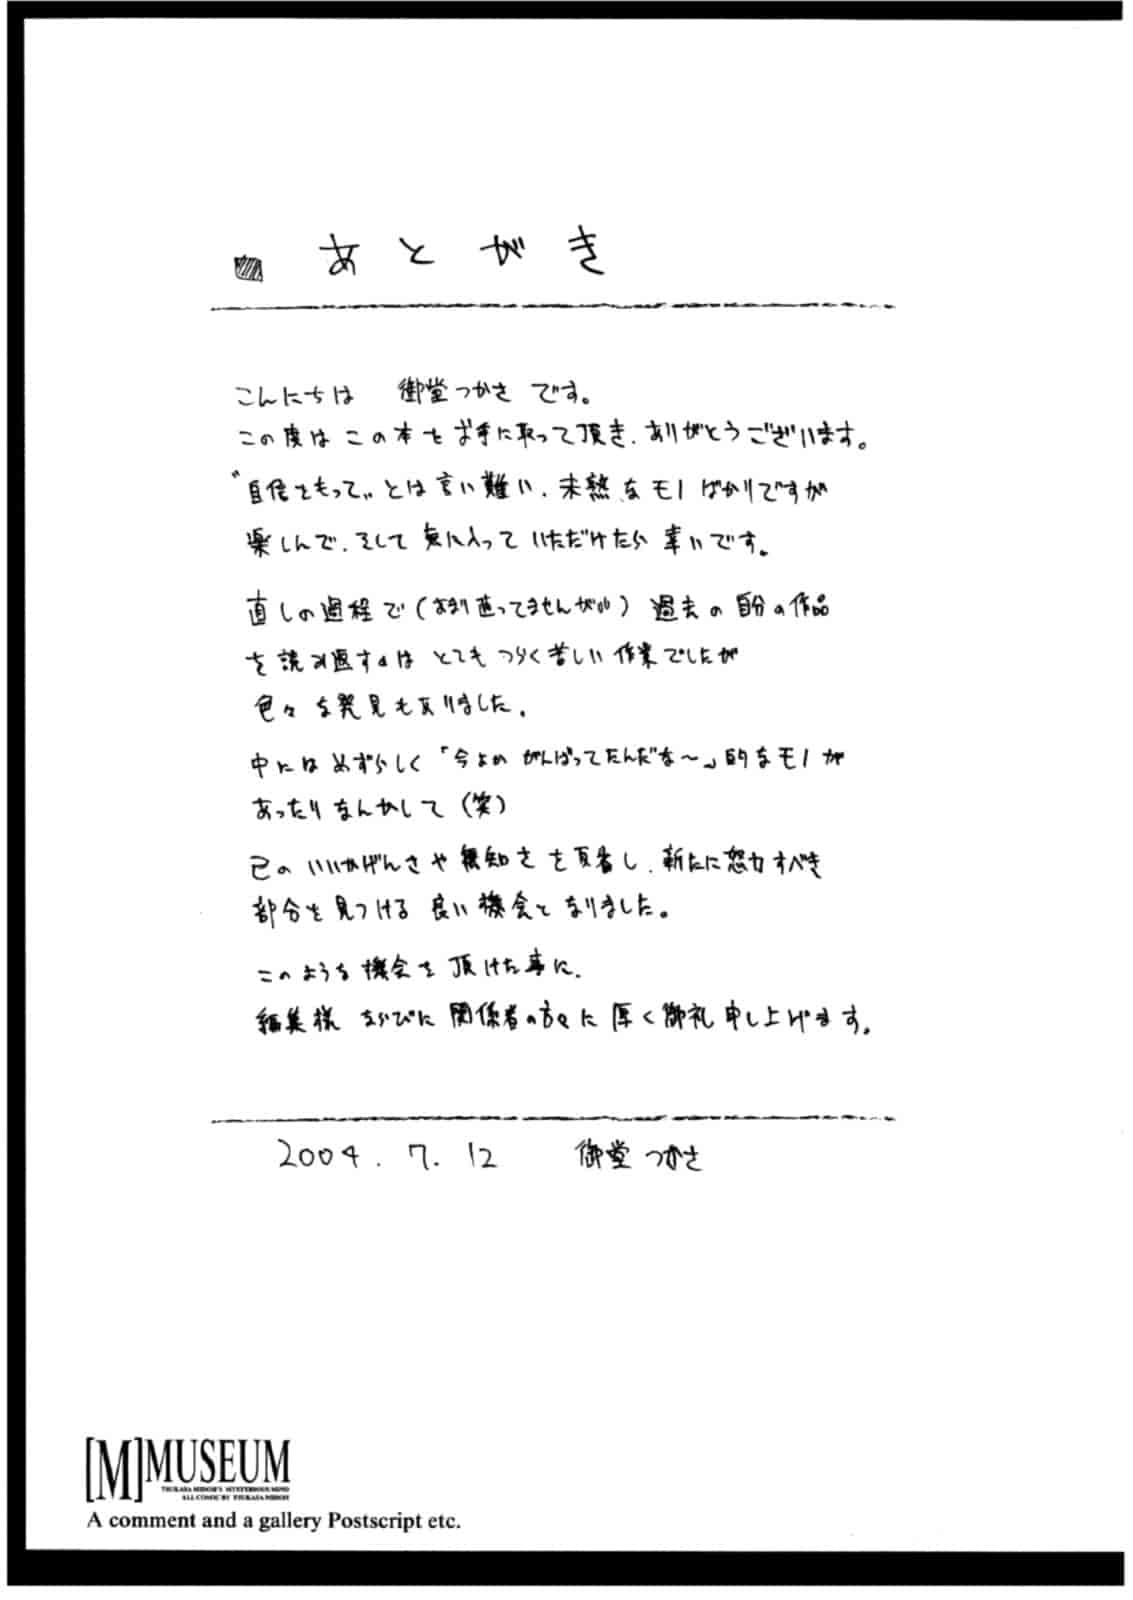 あとがき
こんにちは 御堂つかさ です。
この度は この本を お手に取って頂き、ありがとうございます。
"自信をもって〟とは言い難い、未熟なモノばかりですが
楽しんで、そして 気に入って いただけたら 幸いです。
直しの過程で(あまり直ってませんが) 過去の自分の作品
を読み返すのは とても つらく苦しい 作業でしたが
色々な発見もありました。
中には めずらしく「今より がんばってたんだな〜」的なモノが
あったりなんかして(笑)
己の いいかげんさや 無知さを反省し、新たに努力すべき
部分を見つける 良い機会となりました。
このような機会を 頂けた事に、
編集様 ならびに 関係者の方々に 厚く御礼申し上げます。
2004. 7. 12 御堂つかさ
[M]MUSEUM
TSUKASA MIDOH'S MYSTERIOUS MIND
ALL COMIC BY TSUKASA MIDOH
A comment and a gallery Postscript etc.